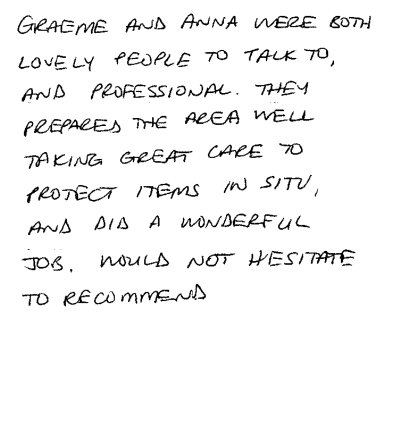 GRAEME AND ANNA WERE BOTH
LOVELY PEOPLE TO TALK TO,
AND PROFESSIONAL. THEY
PREPARED THE AREA WELL
TAKING GREAT CARE TO
PROTECT ITEMS IN SITU,
AND DID A WONDERFUL
JOB. WOULD NOT HESITATE
TO RECOMMEND